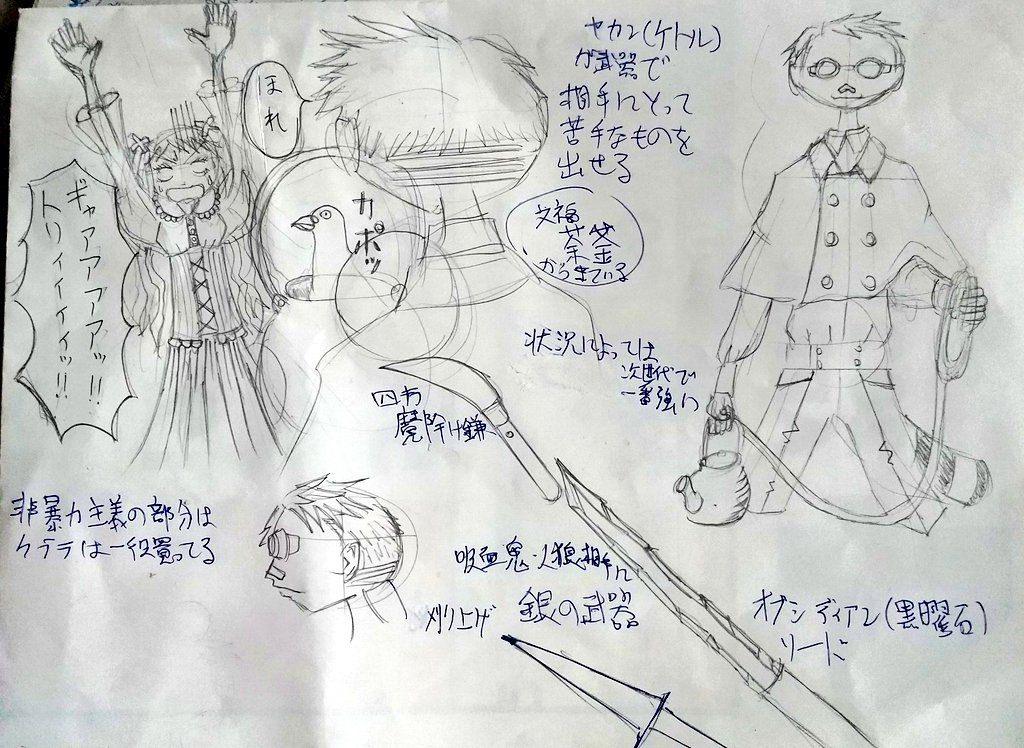 ヤカン(ケトル)
が武器で
相手にとって
苦手なものを
出せる
ほれ
カポッ
ギャアアアアアッ!!
トリィィィィッ!!
文福
茶釜
からきている
状況によっては
次世代で
一番強い
四方
魔除け鎌
非暴力主義の部分は
ケテラは一役買ってる
吸血鬼・人狼相手に
銀の武器
刈り上げ
オブシディアン(黒曜石)
ソード